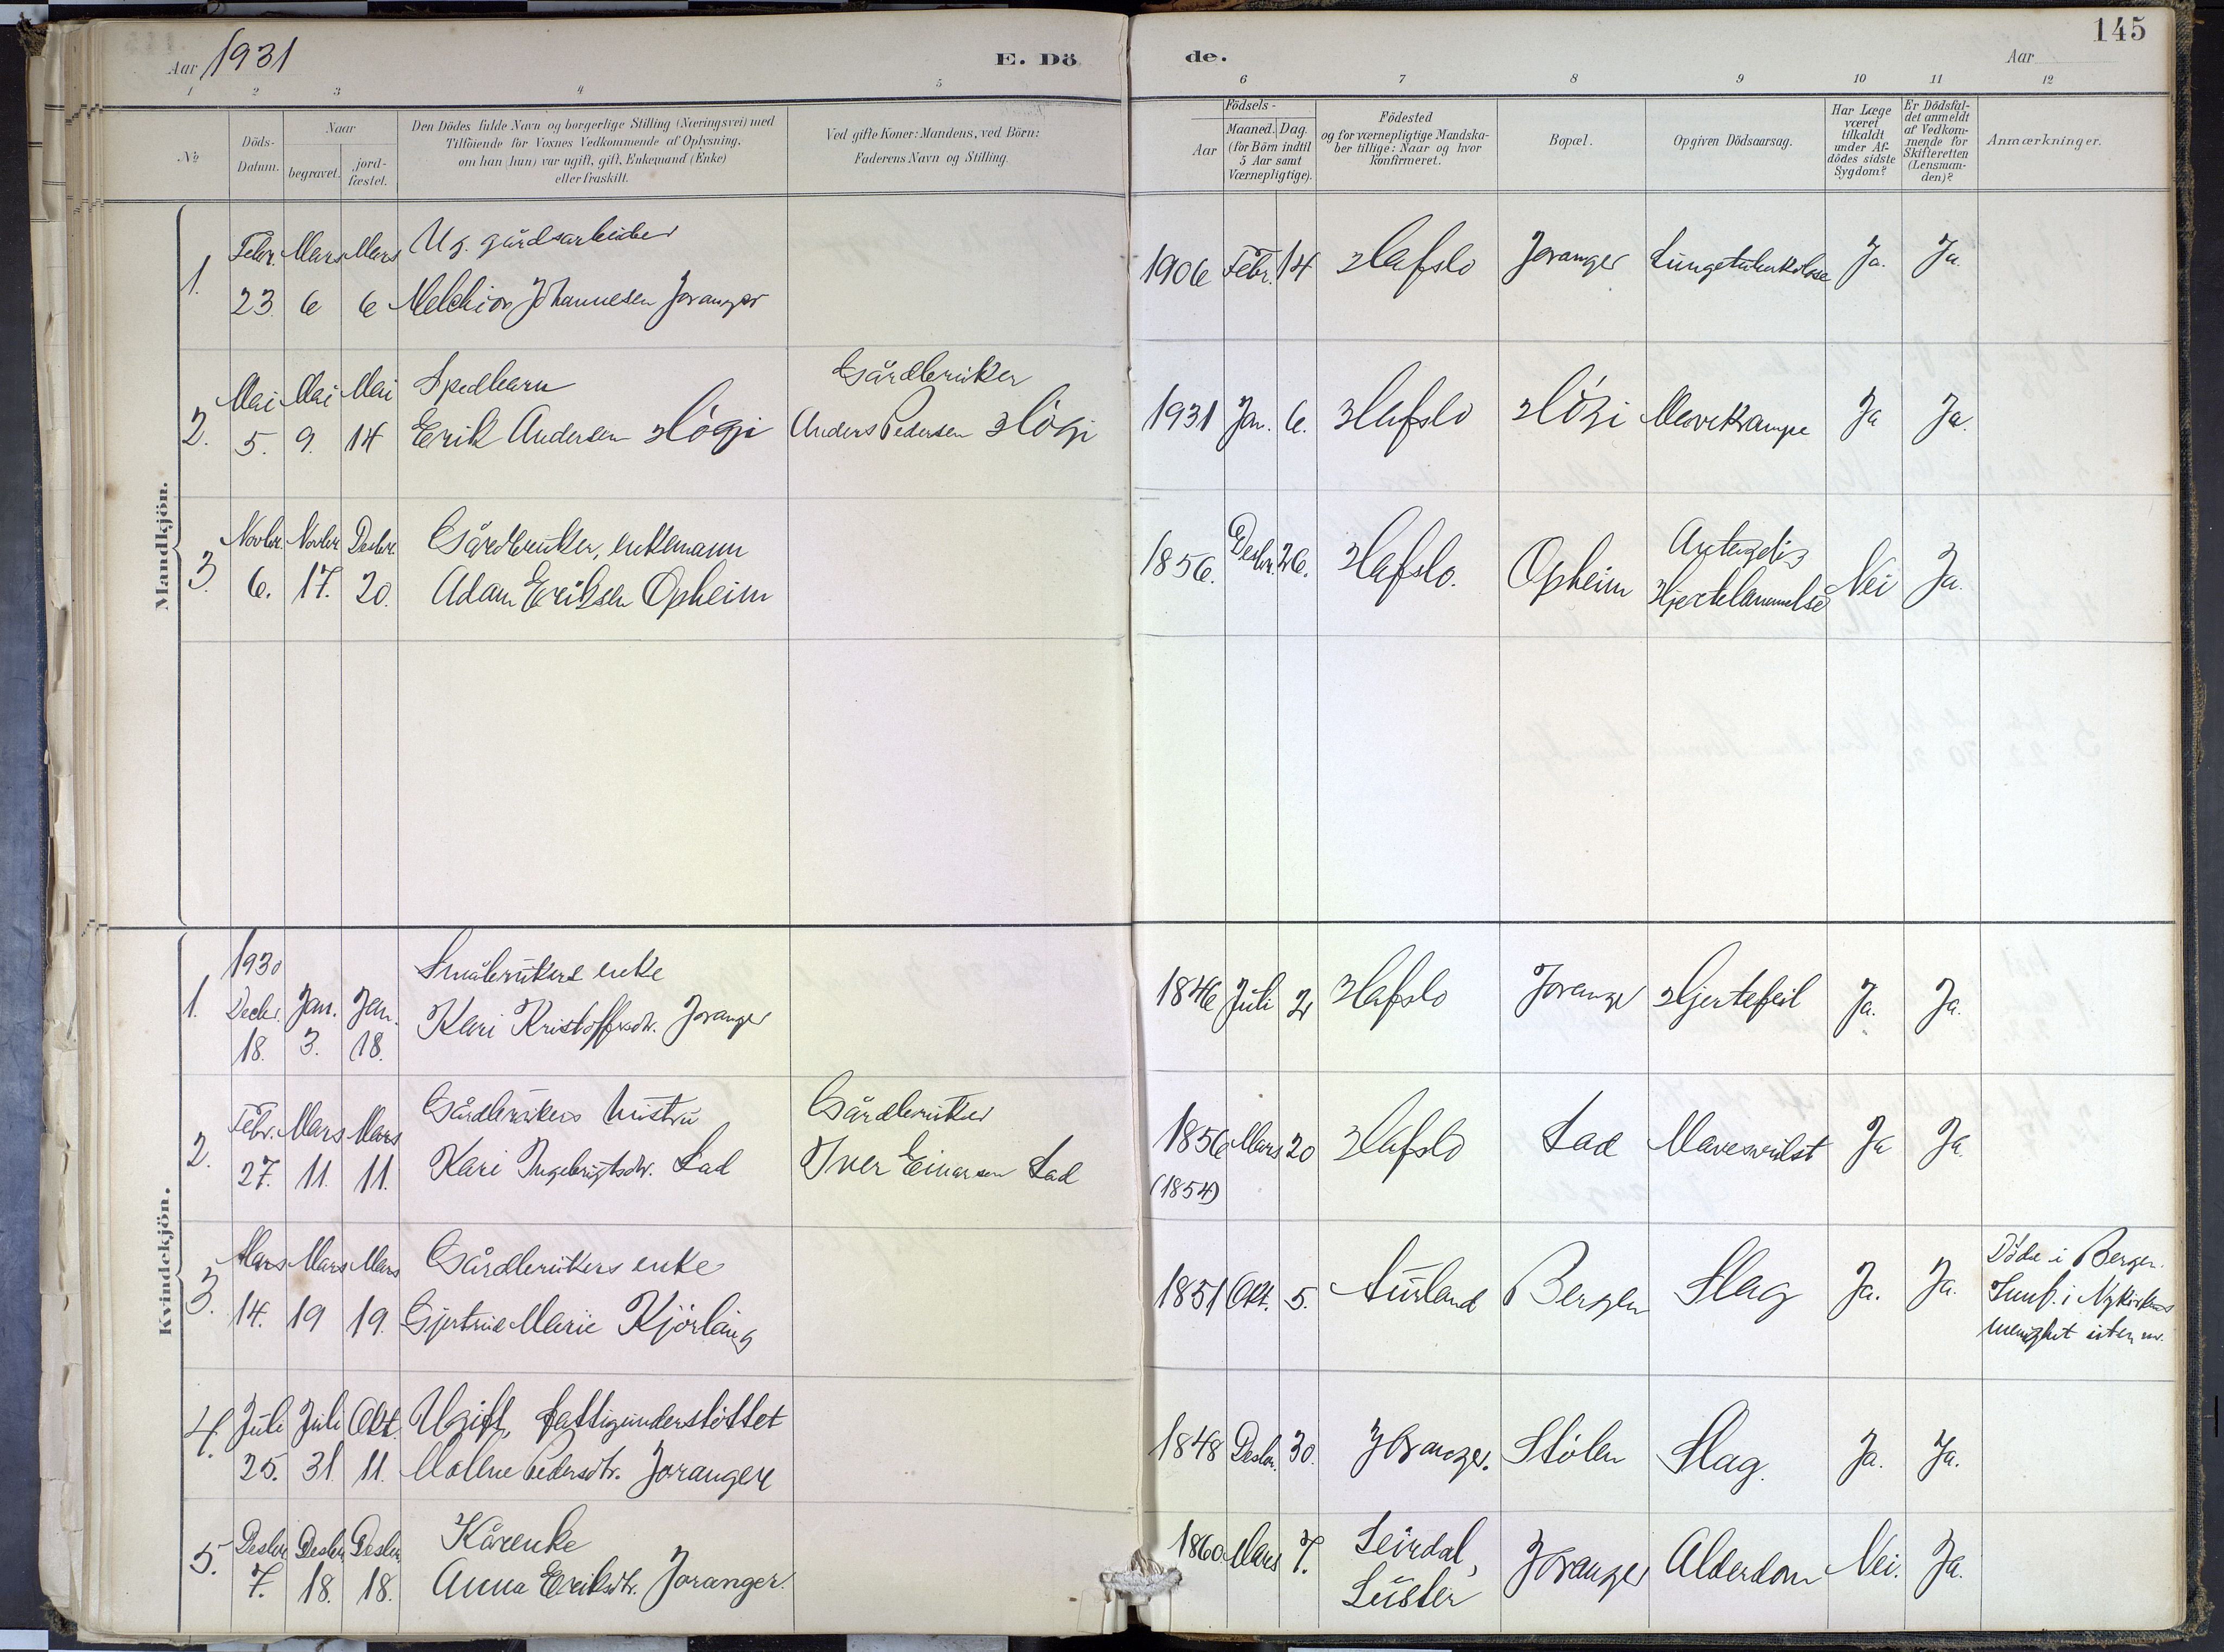 Aar 1931
E. Dö
de.
Aar
145
1 2 3 4 5 6 7 8 9 10 11 12
No
Döds-
Datum.
Naar
begravet.
jord-
fæstet.
Den Dödes fulde Navn og borgerlige Stilling (Næringsvei) med
Tilföiende for Voxnes Vedkommende af Oplysning,
om han (hun) var ugift, gift, Enkemand (Enke)
eller fraskilt.
Ved gifte Koner: Mandens, ved Börn:
Faderens Navn og Stilling.
Födsels-
Aar
Maaned. Dag.
(for Börn indtil
5 Aar samt
Værnepligtige).
Födested
og for værnepligtige Mandska-
ber tillige: Naar og hvor
konfirmeret.
Bopæl.
Opgiven Dödsaarsag.
Har Læge
været
tilkaldt
under Af-
dödes sidste
Sygdom?
Er Dödsfal-
det anmeldt
af Vedkom-
mende for
Skifteretten
(Lensman-
den)?
Anmærkninger.
Mandkjön.
1. Febr. Mars Mars Ug. gårdsarbeider
23. 6 6 Melchior Johannesen Joranger
1906 Febr. 14 Hafslo Joranger Lungetuberkulose Ja. Ja.
2. Mai Mai Mai Spedbarn Gårdbruker
5. 9. 14 Erik Andersen Högi Anders Pedersen Högi
1931 Jan. 6. Hafslo Högi Mavekrampe Ja Ja.
3. Novbr. Novbr. Desbr. Gårdbruker, enkemann
6. 17. 20. Adam Eriksen Opheim
1856. Desbr. 26. Hafslo. Opheim Antagelig
Hjertelammelse Nei Ja.
Kvindekjön.
1930
1. Decbr. Jan. Jan. Småbrukers enke
18. 3. 18. Kari Kristoffersdtr. Joranger
1846 Juli 2 Hafslo Joranger Hjertefeil Ja. Ja.
2. Febr. Mars Mars Gårdbrukers hustru Gårdbruker
27. 11. 11. Kari Ingebrigtsdtr. Lad Iver Einarsen Lad
1856 Mars 20 Hafslo Lad Mavesvulst Ja Ja.
(1854)
3. Mars Mars Mars Gårdbrukers enke
14. 19 19. Gjertrud Marie Kjörlaug
1851 Okt. 5. Aurland Bergen Slag Ja. Ja.
Döde i Bergen.
Innf. i Nykirkens
menighet uten nr.
4. Juli Juli Okt. Ugift, fattigunderstöttet
25. 31. 11. Malene Pedersdtr. Joranger
1848 Desbr. 30. Joranger. Stölen Slag. Ja. Ja.
5. Desbr. Desbr. Desbr. Kårenke
7. 18. 18. Anna Eriksdtr. Joranger.
1860 Mars 7. Leirdal,
Luster Joranger Alderdom Nei. Ja.